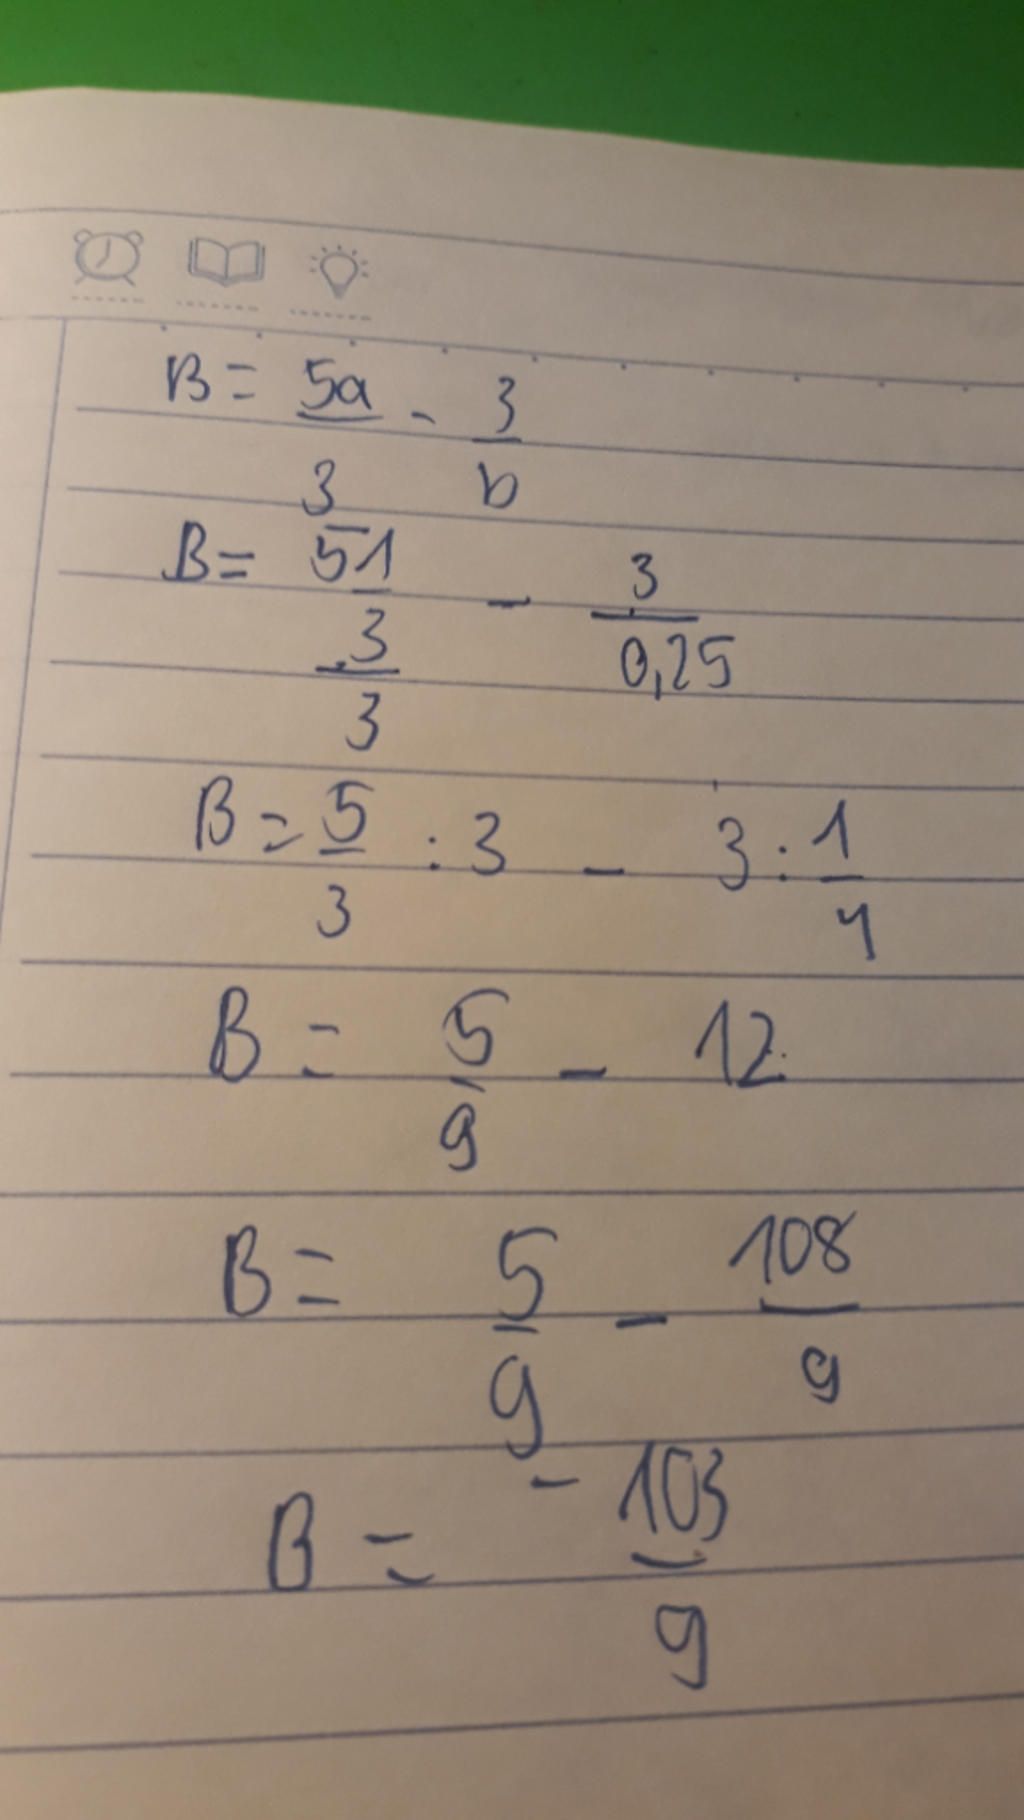 B = 5a/3 - 3/b
B = 5 1/3/3 - 3/0,25
B = 5/3 : 3 - 3 : 1/4
B = 5/9 - 12
B = 5/9 - 108/9
B = -103/9